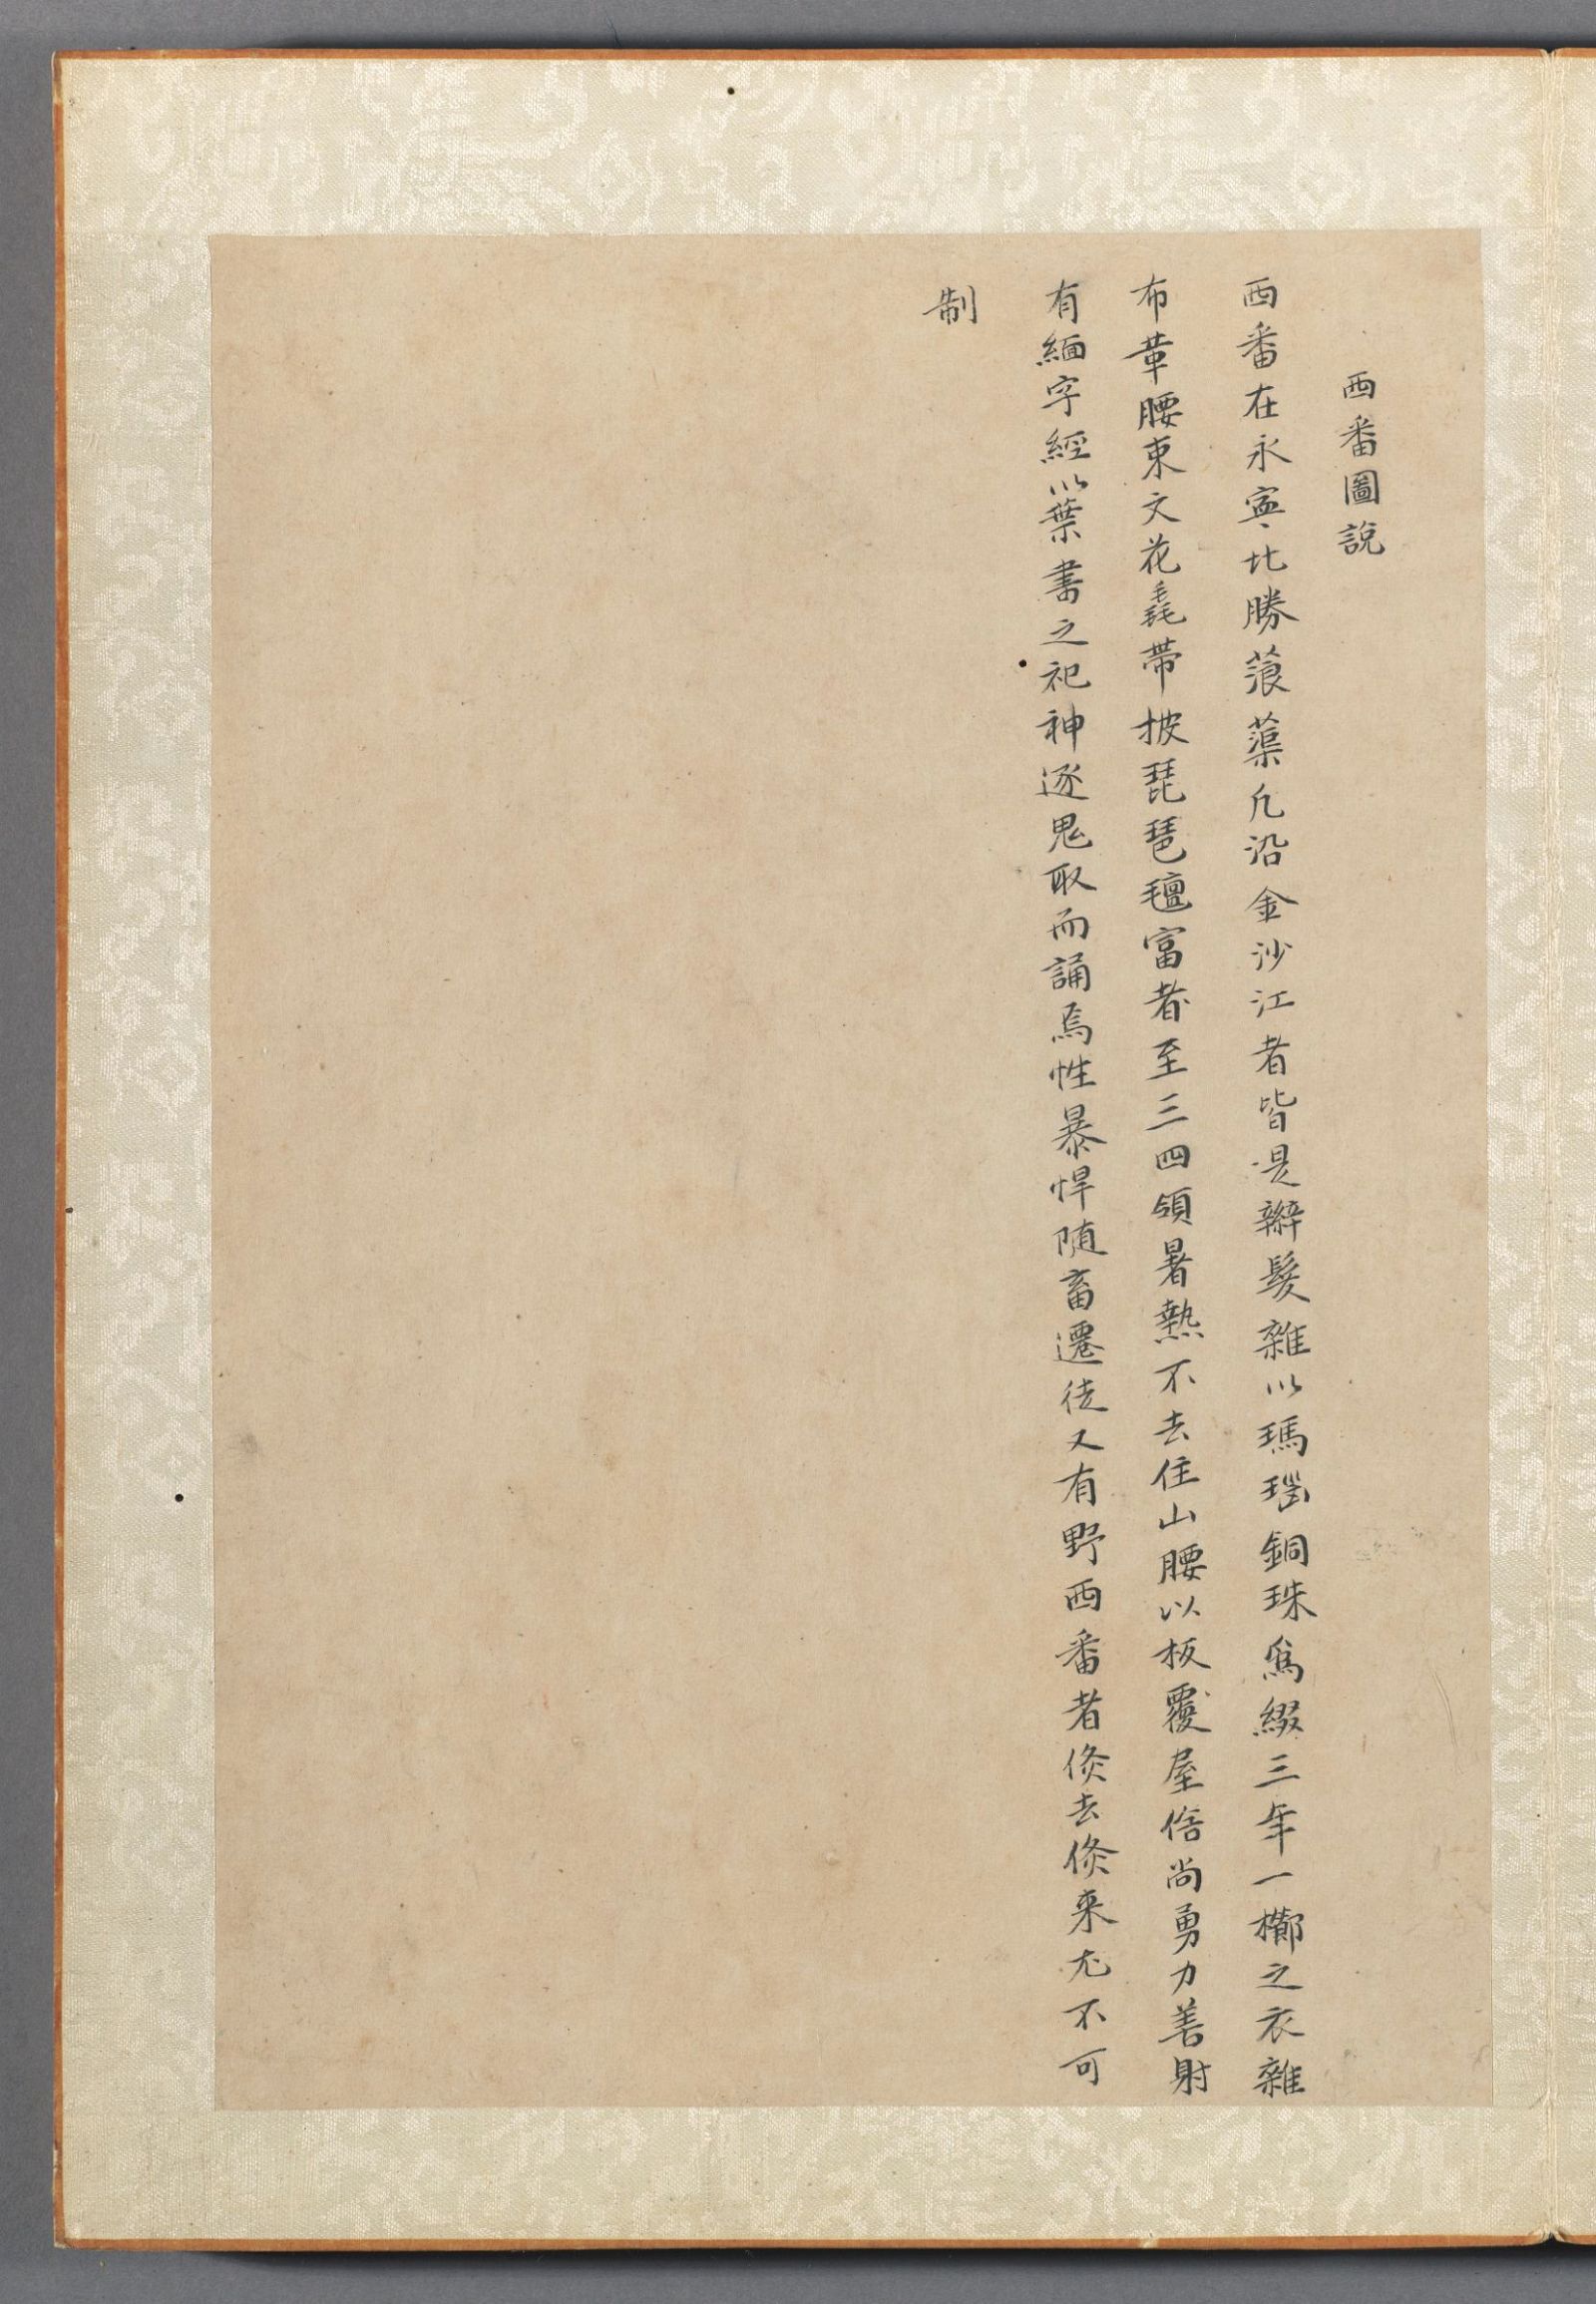 西番圖說
西番在永寧北勝蒗蕖凡沿金沙江者皆是辮髮雜以瑪瑙銅珠為綴三年一櫛之衣雜
布革腰束文花毳帶披琵琶氊富者至三四領暑熱不去住山腰以板覆屋俗尚勇力善射
有緬字經以葉書之祀神逐鬼取而誦焉性暴悍随畜遷徙又有野西番者倏去倏來尤不可
制